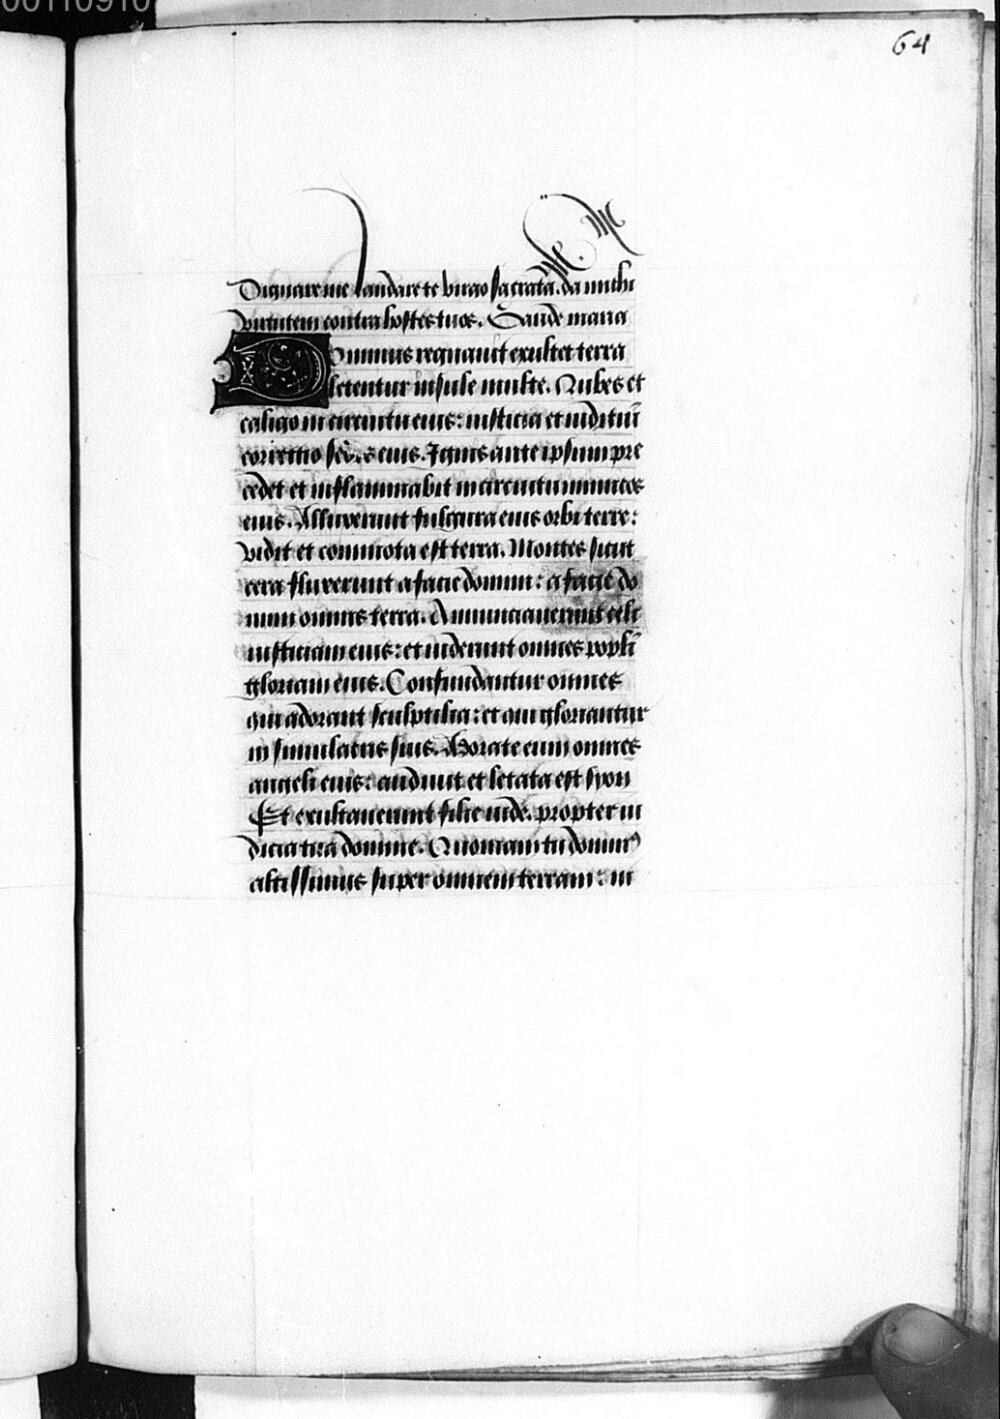 00110910
64
Dignare me laudare te virgo sacrata. da michi
virtutem contra hostes tuos. Gaude maria
Dominus regnauit exultet terra
letentur insule multe. Nubes et
caligo in circuitu eius: iusticia et iudiciū
correctio sedis eius. Ignis ante ipsum pre
cedet et inflammabit in circuitu inimicos
eius. Alluxerunt fulgura eius orbi terre:
vidit et commota est terra. Montes sicut
cera fluxerunt a facie domini: a facie do
mini omnis terra. Annunciauerunt celi
iusticiam eius: et viderunt omnes popłi
gloriam eius. Confundantur omnes
qui adorant sculptilia: et qui gloriantur
in simulacris suis. Adorate eum omnes
angeli eius: audiuit et letata est syon
Et exultauerunt filie iude. propter iu
dicia tua domine. Quoniam tu domin⁹
altissimus super omnem terram: in